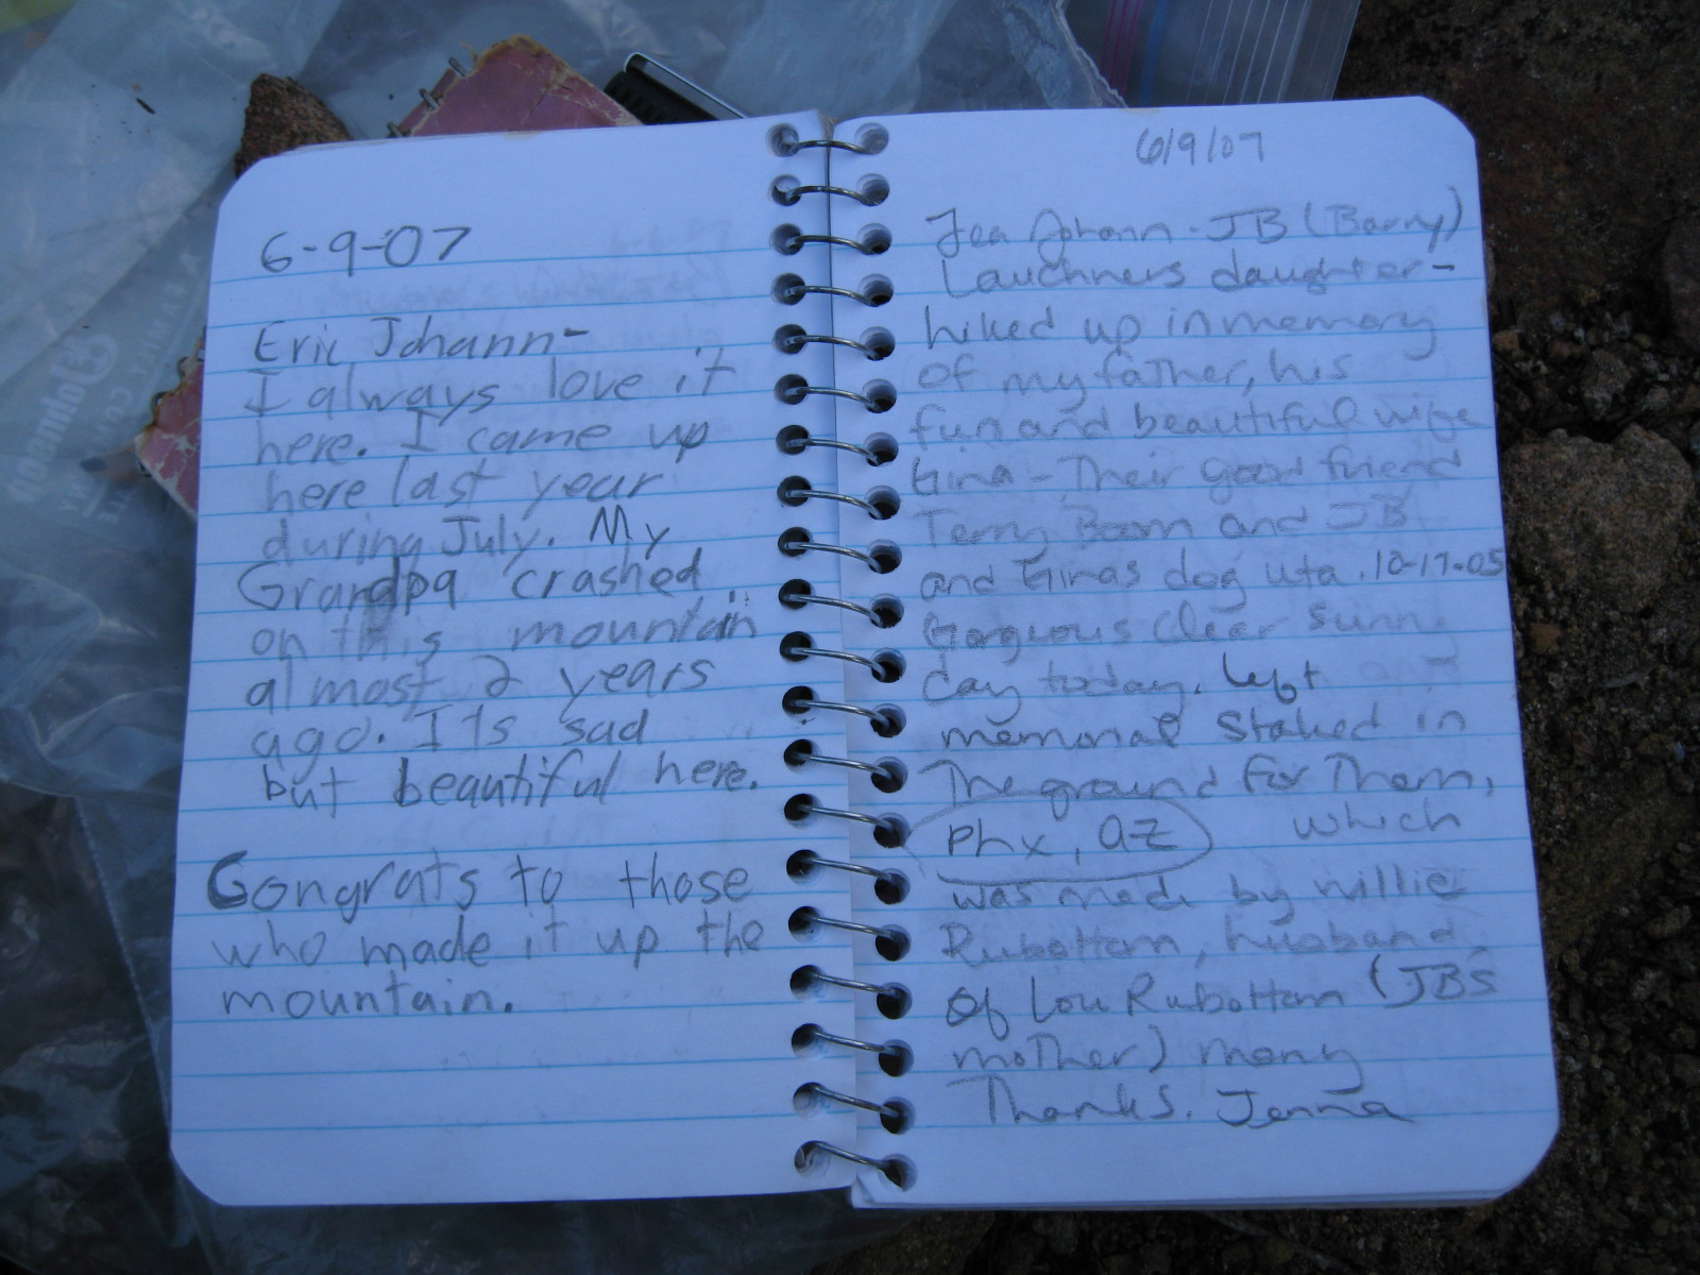 6-9-07
Eric Johann-
I always love it
here. I came up
here last year
during July. My
Grandpa crashed
on this mountain
almost 2 years
ago. Its sad
but beautiful here.
Congrats to those
who made it up the
mountain.
6/9/07
Johann - JB (Barry)
Lauchners daughter -
hiked up in memory
of my father, his
fun and beautiful wife
Gina - Their good friend
Terry and JB
and Ginas dog uta. 10-17-05
Gorgeous clear sunny
day today. Left
memorial staked in
The ground for Them,
Phx, az which
was made by willie
Rubottom, husband
of Lou Rubottom (JBs
mother) many
Thanks. Jenna
Johnson